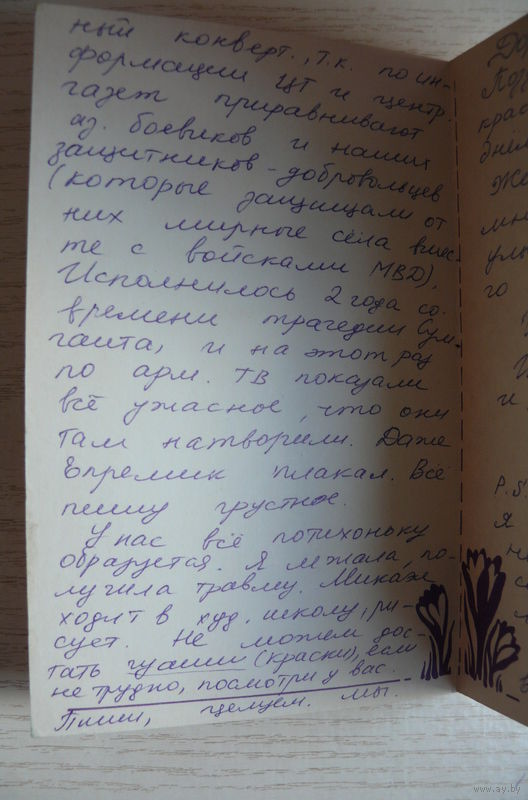 ный конверт., т.к. по ин-
формации ЦТ и центр.
газет приравнивают
аз. боевиков и наших
защитников-добровольцев
(которые защищали от
них мирные сёла вмес-
те с войсками МВД).
Исполнилось 2 года со
времени трагедии Сум-
гаита, и на этот раз
по арм. ТВ показали
всё ужасное, что они
там натворили. Даже
Епремик плакал. Всё
пишу грустное.
У нас всё потихоньку
образуется. Я лежала, по-
лучила травму. Микаэл
ходит в худ. школу, ри-
сует. Не можем дос-
тать гуаши (краски), если
не трудно, посмотри у вас.
Пиши, целуем. мы.
До
крас
днём
Же
мн
улы
го
и
P.S
Я
www.ay.by